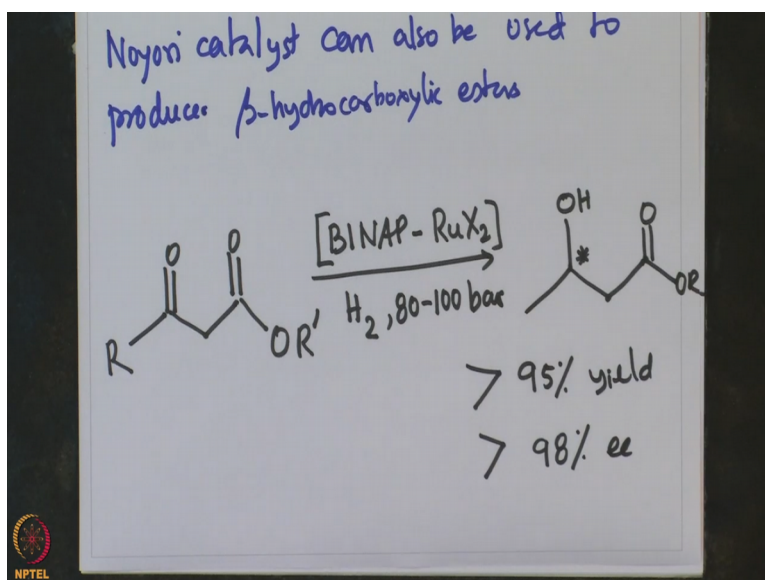 Noyori catalyst can also be used to
produce β-hydrocarboxylic esters
O O
R OR'
[BINAP-RuX₂]
H₂, 80-100 bar
OH O
* OR
> 95% yield
> 98% ee
NPTEL